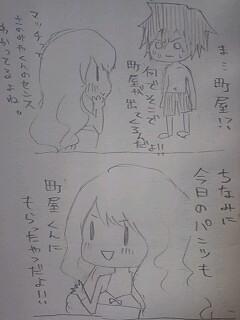 まこ町屋!?
何でそこで
町屋が出てくるんだよ!!
マッチって
さのやくんのセンス
ちなみに
今日のパンツも
町屋くんに
もらっちゃつだよ!!